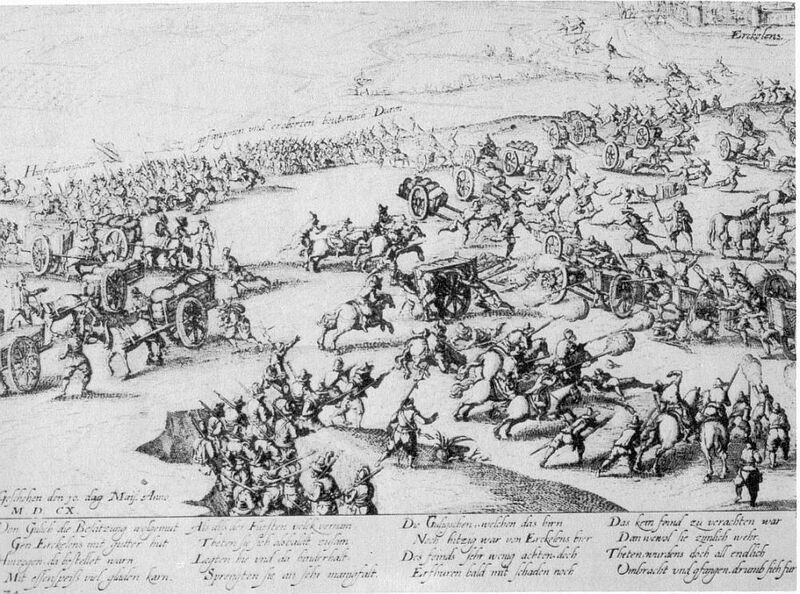 Erckelens
gefangenen und eroberten beut nach Duren
Geschehen den 10. dag Maij. Anno
M D C X
Von Gulich die Besatzung wolgemut
Gen Erckelens mit gutter hut
da bestellet warn
Mit essenspeiß viel gladen karn.
Als das der Fürsten volck vernam
Theten sie sich zusam
Legten hie und da hinderhalt
Sprengten sie an sehr manigfalt.
Die Gulischen, welchen das hirn
Noch hitzig war von Erckelens bier
Des feinds sehr wenig achten doch
Erfhuren bald mit schaden noch
Das kein feind zu verachten war
Dan wewol sie zimlich wehr
Theten, wurdens doch all endlich
Umbracht und gfangen. drumb sieh für